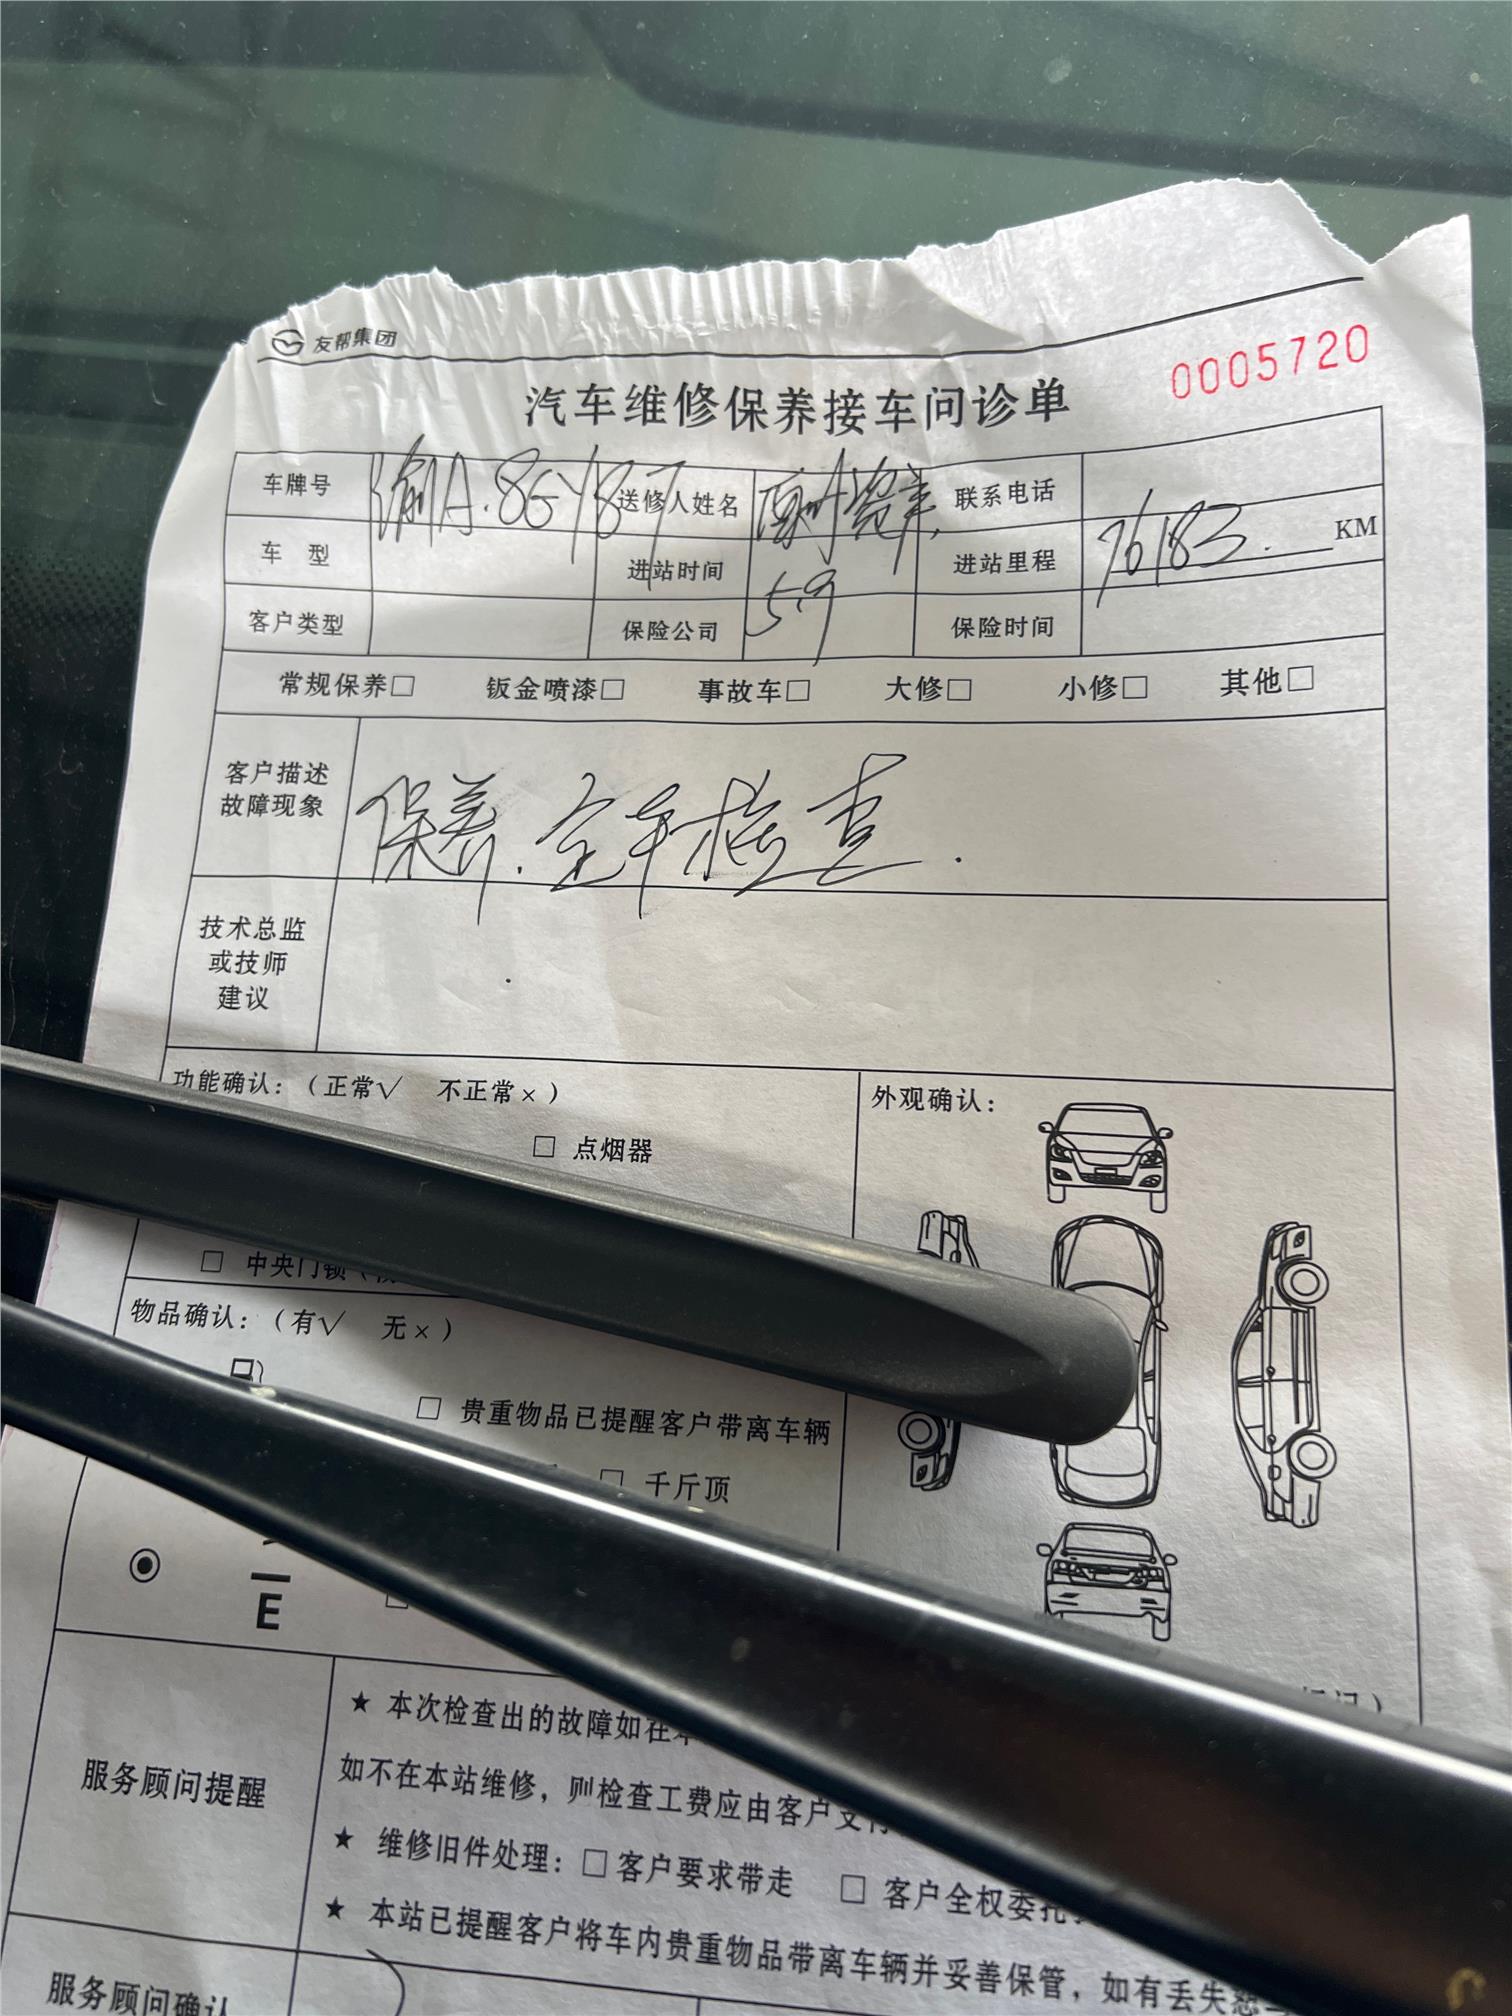 友帮集团
0005720
汽车维修保养接车问诊单
车牌号 渝A.8GY87 送修人姓名 联系电话
车 型 进站时间 5.9 进站里程 76183. KM
客户类型 保险公司 保险时间
常规保养□ 钣金喷漆□ 事故车□ 大修□ 小修□ 其他□
客户描述
故障现象
保养.全车检查.
技术总监
或技师
建议
功能确认：（正常√ 不正常×）
外观确认：
□ 点烟器
□ 中央门锁（
物品确认：（有√ 无×）
□ 贵重物品已提醒客户带离车辆
□ 千斤顶
E
标记）
服务顾问提醒
★ 本次检查出的故障如在本
如不在本站维修，则检查工费应由客户支付
★ 维修旧件处理：□客户要求带走 □ 客户全权委托
★ 本站已提醒客户将车内贵重物品带离车辆并妥善保管，如有丢失恕
服务顾问确认